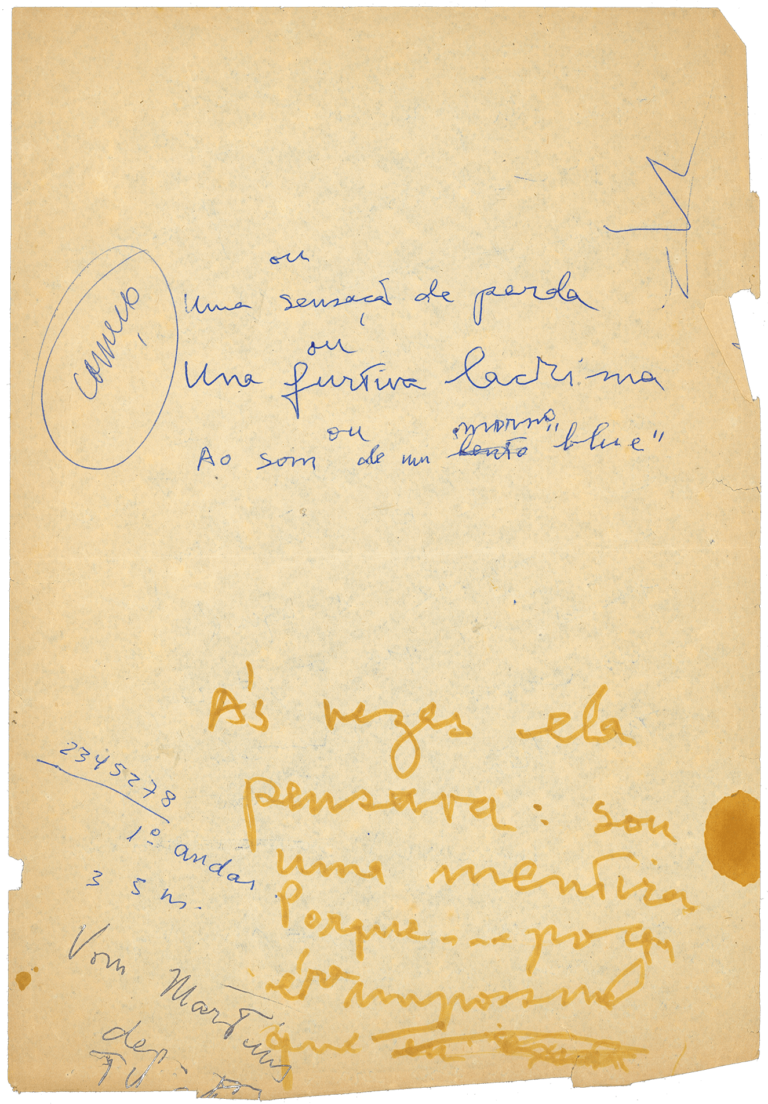 ou
Uma sensaçã de perda
ou
Una furtiva lacrima
ou
morno
Ao som de um lento "blue"
começo
Às vezes ela
pensava: sou
uma mentira
Porque... porque
era impossível
que
2345278
1º andar
3 5 m.
Vom Martins